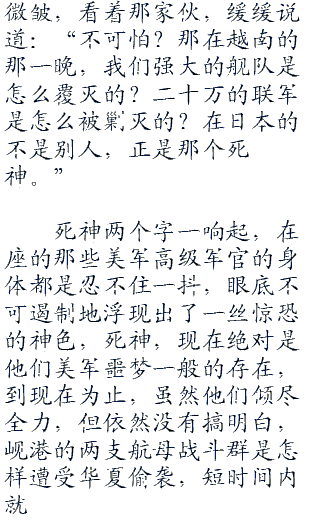 微皱，看着那家伙，缓缓说
道：“不可怕？那在越南的
那一晚，我们强大的舰队是
怎么覆灭的？二十万的联军
是怎么被剿灭的？在日本的
不是别人，正是那个死
神。”
死神两个字一响起，在
座的那些美军高级军官的身
体都是忍不住一抖，眼底不
可遏制地浮现出了一丝惊恐
的神色，死神，现在绝对是
他们美军噩梦一般的存在，
到现在为止，虽然他们倾尽
全力，但依然没有搞明白，
岘港的两支航母战斗群是怎
样遭受华夏偷袭，短时间内
就